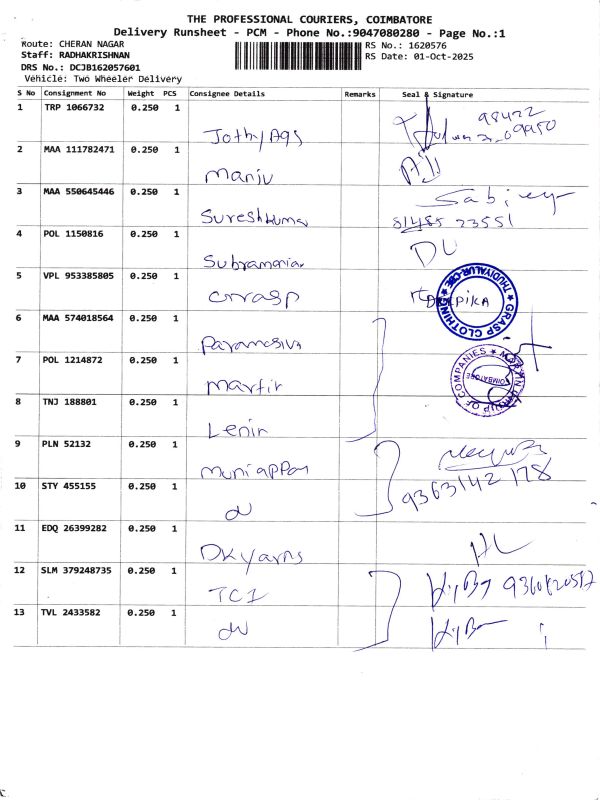 THE PROFESSIONAL COURIERS, COIMBATORE
Delivery Runsheet - PCM - Phone No.:9047080280 - Page No.:1
Route: CHERAN NAGAR
RS No.: 1620576
Staff: RADHAKRISHNAN
RS Date: 01-Oct-2025
DRS No.: DCJB162057601
Vehicle: Two Wheeler Delivery
S No Consignment No Weight PCS Consignee Details Remarks Seal & Signature
1 TRP 1066732 0.250 1
98422
Jothy Ags
2 MAA 111782471 0.250 1
Manju
3 MAA 550645446 0.250 1
Sureshkumar 81485 23551
4 POL 1150816 0.250 1
Subramanian
5 VPL 953385805 0.250 1
Grrasp DEEPIKA
GRASP CLOTHING THUDIYALUR-CBE
6 MAA 574018564 0.250 1
Paramasiva
7 POL 1214872 0.250 1
Martin
GROUP OF COMPANIES
COIMBATORE
8 TNJ 188801 0.250 1
Lenin
9 PLN 52132 0.250 1
Muniappan
10 STY 455155 0.250 1
9363142178
11 EDQ 26399282 0.250 1
DK yarns
12 SLM 379248735 0.250 1
TCI
13 TVL 2433582 0.250 1